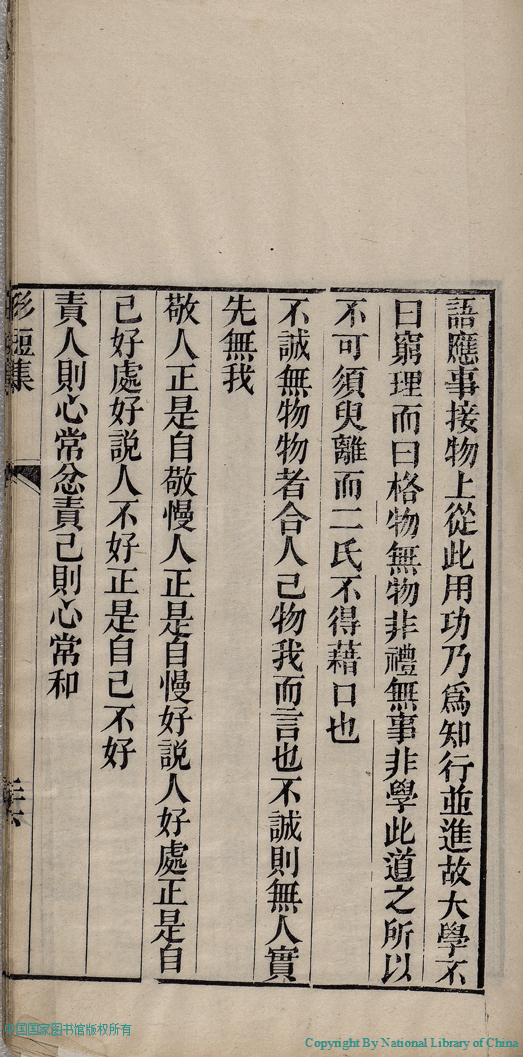 語應事接物上從此用功乃爲知行並進故大學不
曰窮理而曰格物無物非禮無事非學此道之所以
不可須臾離而二氏不得藉口也
不誠無物物者合人己物我而言也不誠則無人實
先無我
敬人正是自敬慢人正是自慢好説人好處正是自
己好處好説人不好正是自己不好
責人則心常忿責己則心常和
中国国家图书馆版权所有
Copyright By National Library of China